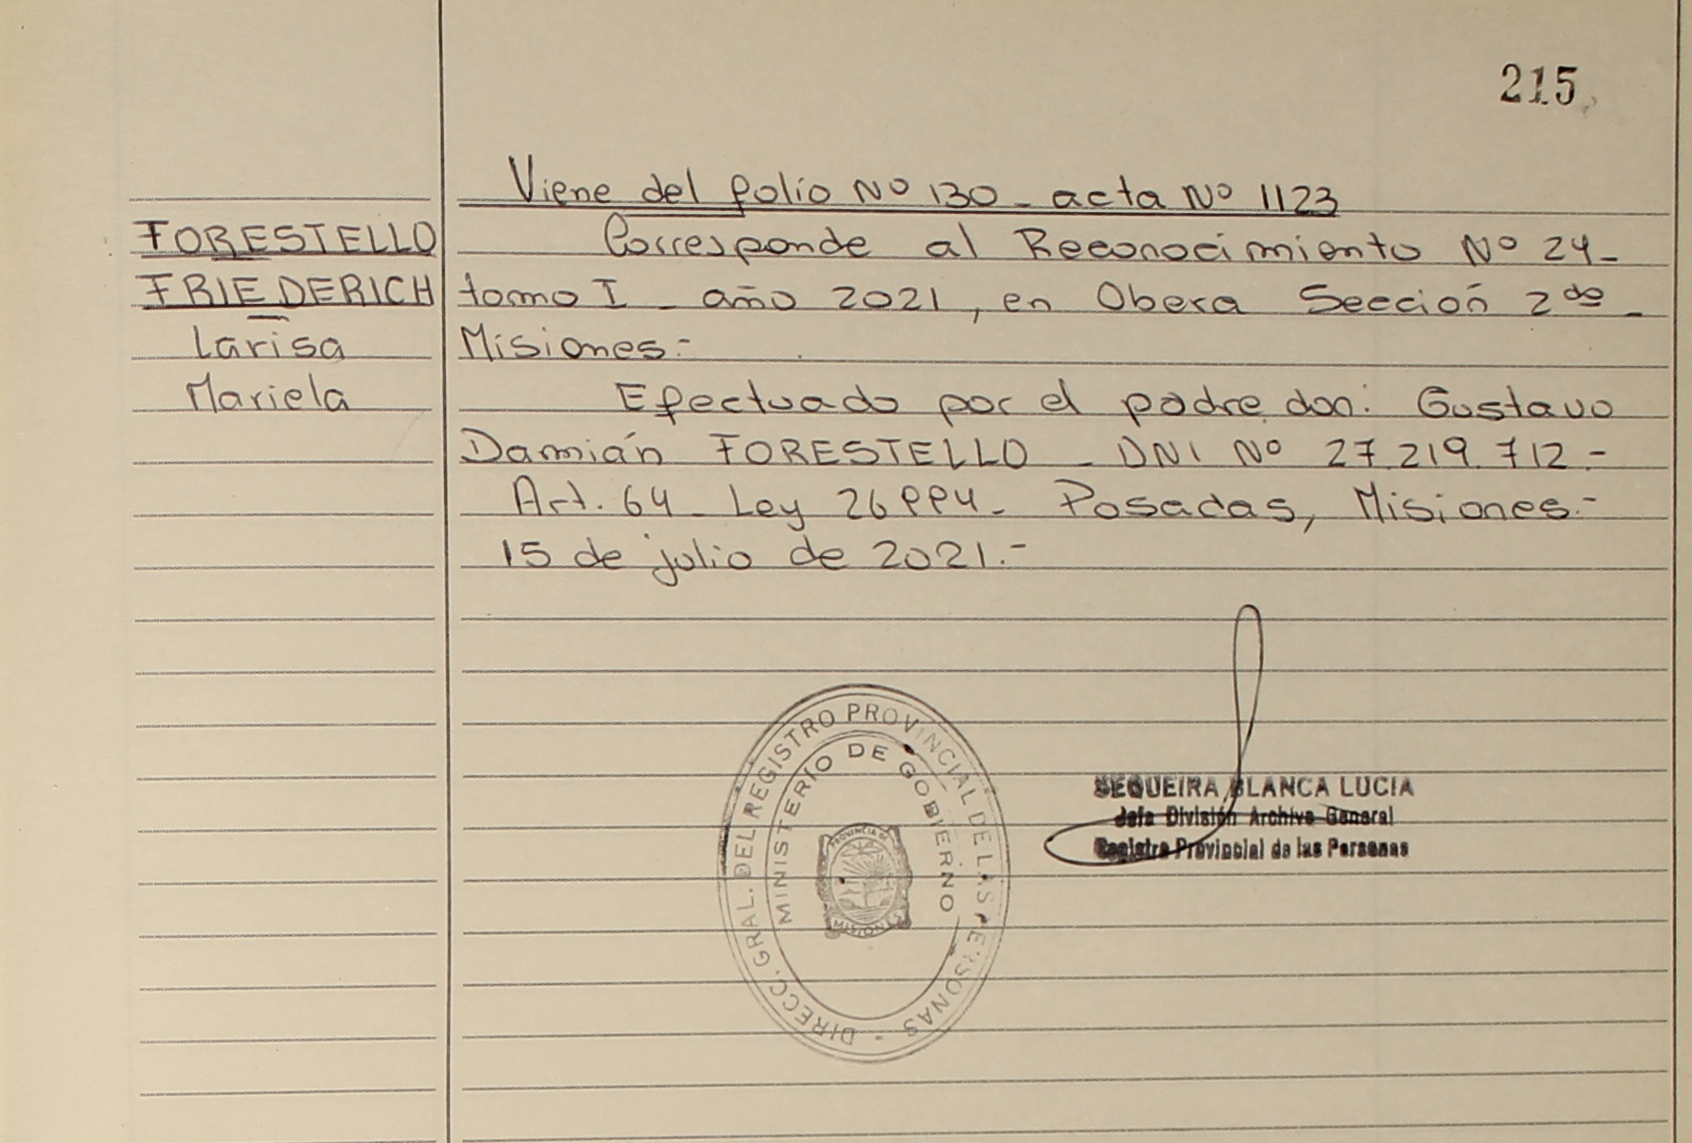 215
Viene del folio Nº 130 - acta Nº 1123
FORESTELLO
FRIEDERICH
Larisa
Mariela
Corresponde al Reconocimiento Nº 24 -
tomo I - año 2021, en Obera Sección 2da -
Misiones.-
Efectuado por el padre don: Gustavo
Damián FORESTELLO - DNI Nº 27.219.712.-
Art. 64 - Ley 26994 - Posadas, Misiones.-
15 de julio de 2021.-
DIRECC. GRAL. DEL REGISTRO PROVINCIAL DE LAS PERSONAS -
MINISTERIO DE GOBIERNO
PROVINCIA DE
MISIONES
SEQUEIRA, BLANCA LUCIA
Jefa División Archivo General
Registro Provincial de las Personas